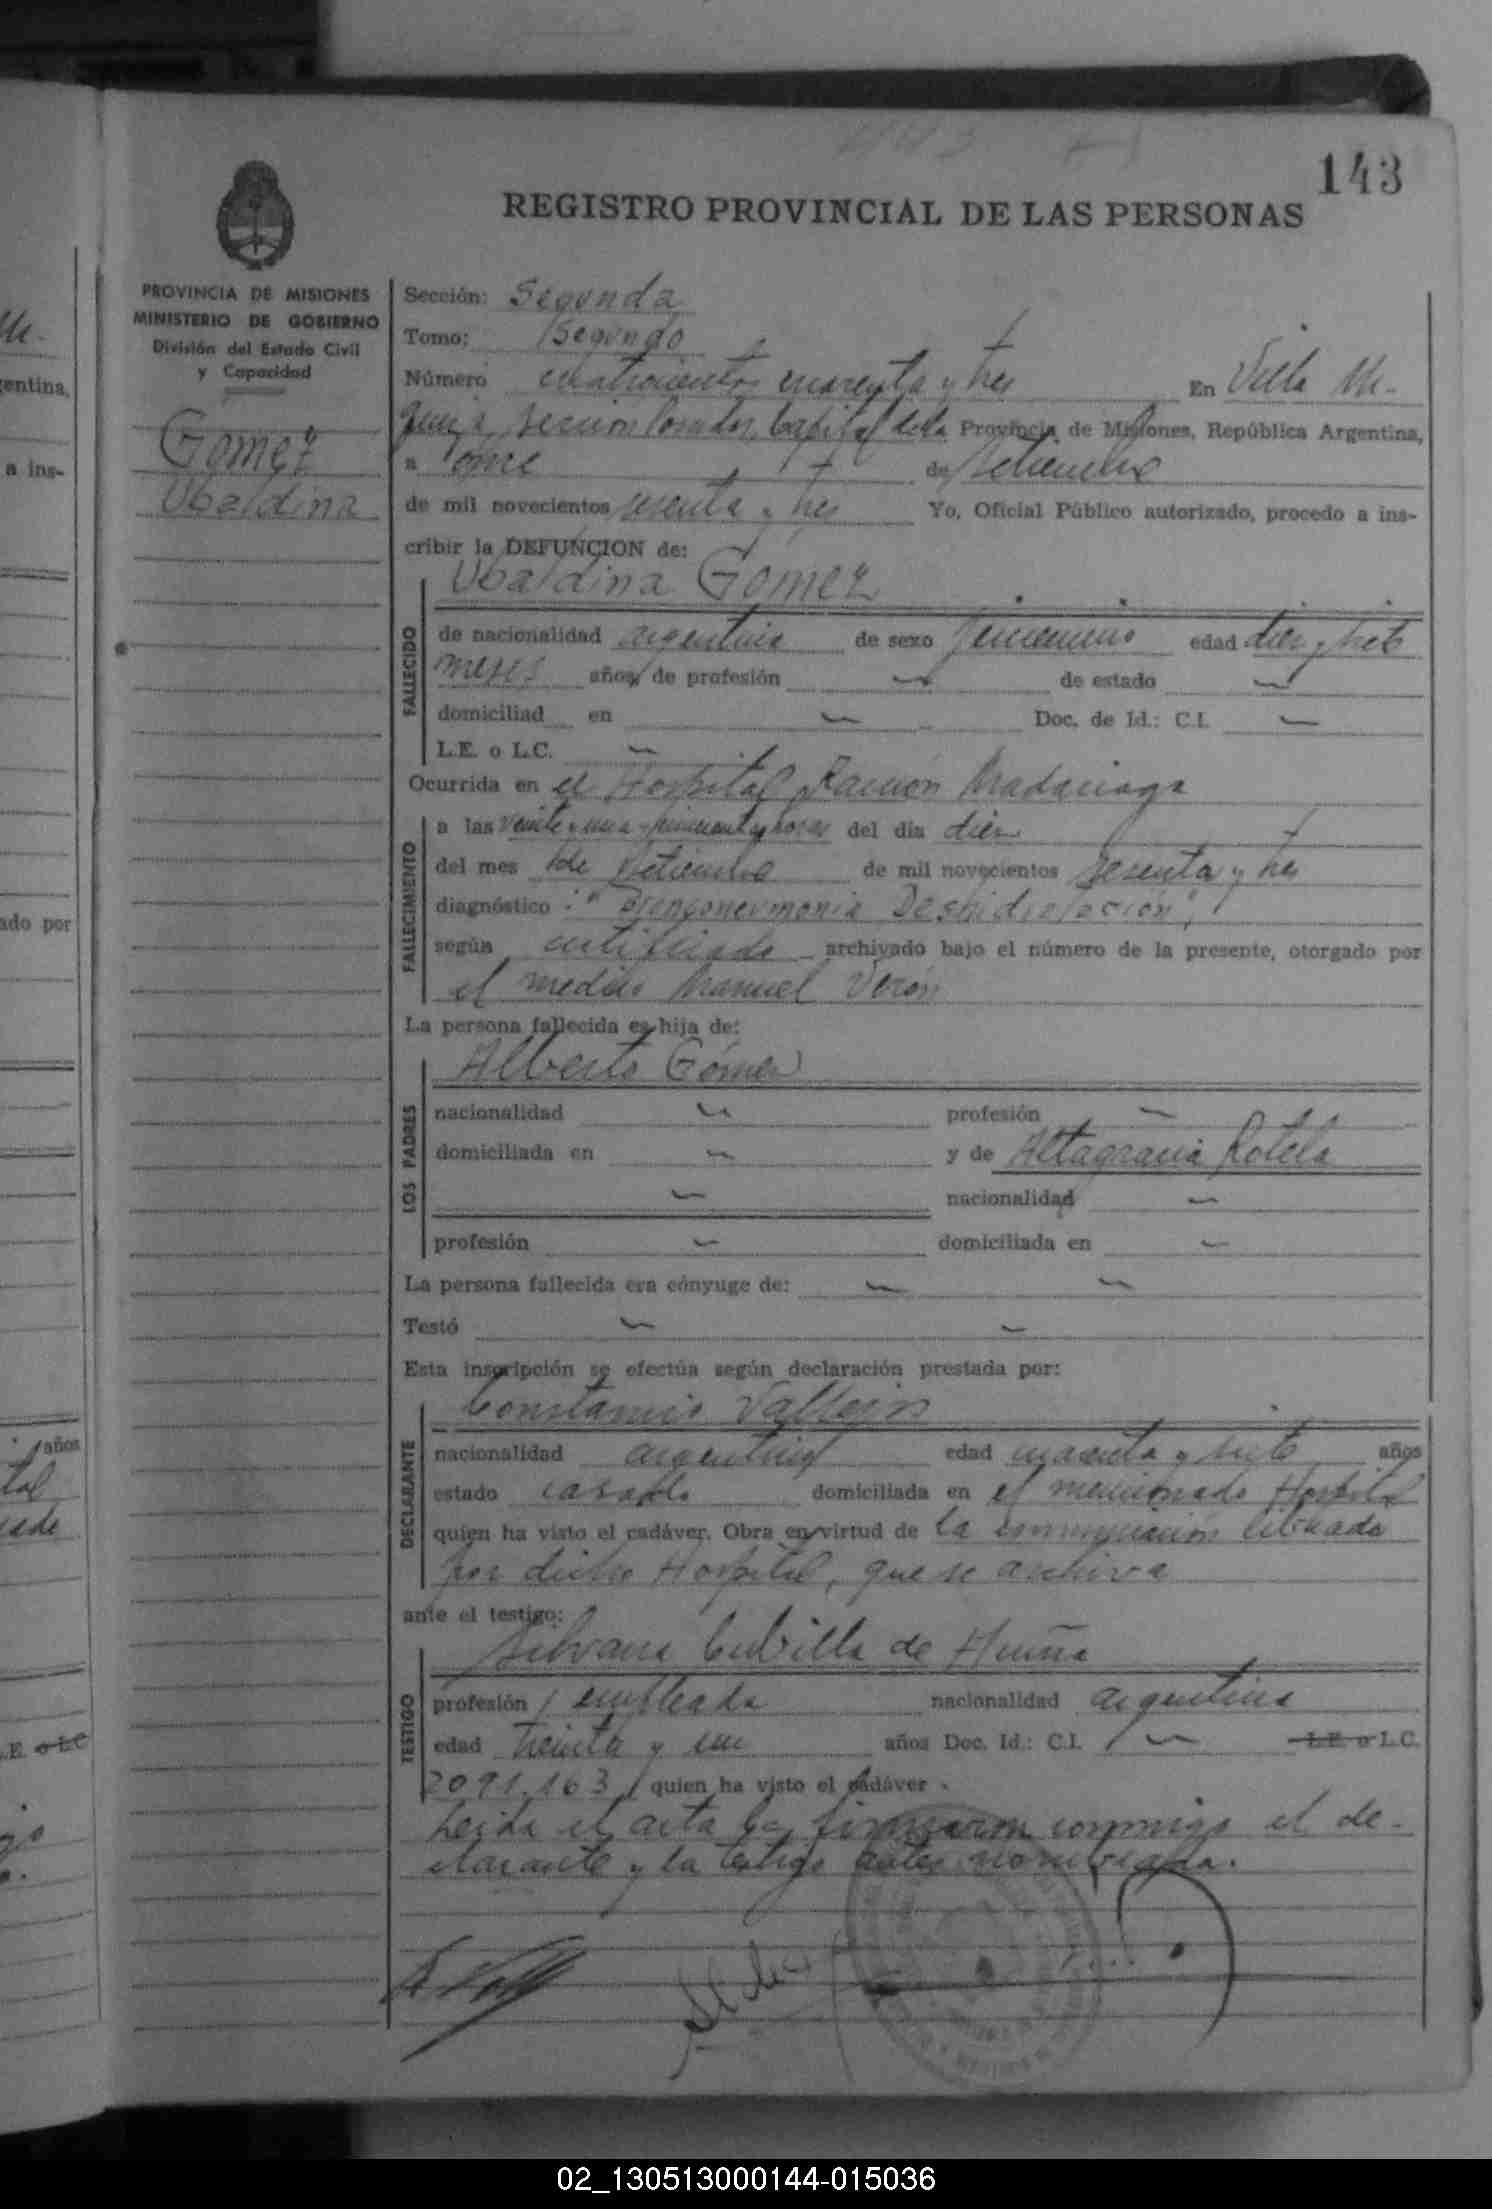 143
REGISTRO PROVINCIAL DE LAS PERSONAS
PROVINCIA DE MISIONES
MINISTERIO DE GOBIERNO
División del Estado Civil
y Capacidad
Gomez
Ubaldina
Sección: Segunda
Tomo: Segundo
Número cuatrocientos cuarenta y tres En Villa
sección Posadas, Capital de la Provincia de Misiones, República Argentina,
a once de setiembre
de mil novecientos sesenta y tres Yo, Oficial Público autorizado, procedo a ins-
cribir la DEFUNCION de:
Ubaldina Gómez
FALLECIDO
de nacionalidad argentina de sexo femenino edad diez y siete
meses años, de profesión de estado
domiciliad en Doc. de Id.: C.I.
L.E. o L.C.
Ocurrida en el Hospital Ramón Madariaga
FALLECIMIENTO
a las veinte y una y cincuenta horas del día diez
del mes de setiembre de mil novecientos sesenta y tres
diagnóstico: "Bronconeumonia Deshidratación",
según certificado archivado bajo el número de la presente, otorgado por
el medico Manuel Verón
La persona fallecida es hija de:
LOS PADRES
Alberto Gómez
nacionalidad profesión
domiciliada en y de Altagracia Rotela
nacionalidad
profesión domiciliada en
La persona fallecida era cónyuge de:
Testó
Esta inscripción se efectúa según declaración prestada por:
DECLARANTE
Constancio Vallejos
nacionalidad argentino edad cuarenta y siete años
estado casado domiciliada en el mencionado Hospital
quien ha visto el cadáver. Obra en virtud de la comunicación librada
por dicho Hospital, que se archiva
ante el testigo:
TESTIGO
Silvana Cubilla de
profesión empleada nacionalidad argentina
edad treinta y un años Doc. Id.: C.I. L.E. o L.C.
2091.163, quien ha visto el cadáver.
Leida el acta la firmaron conmigo el de-
clarante y la testigo antes nombrada.
02_130513000144-015036